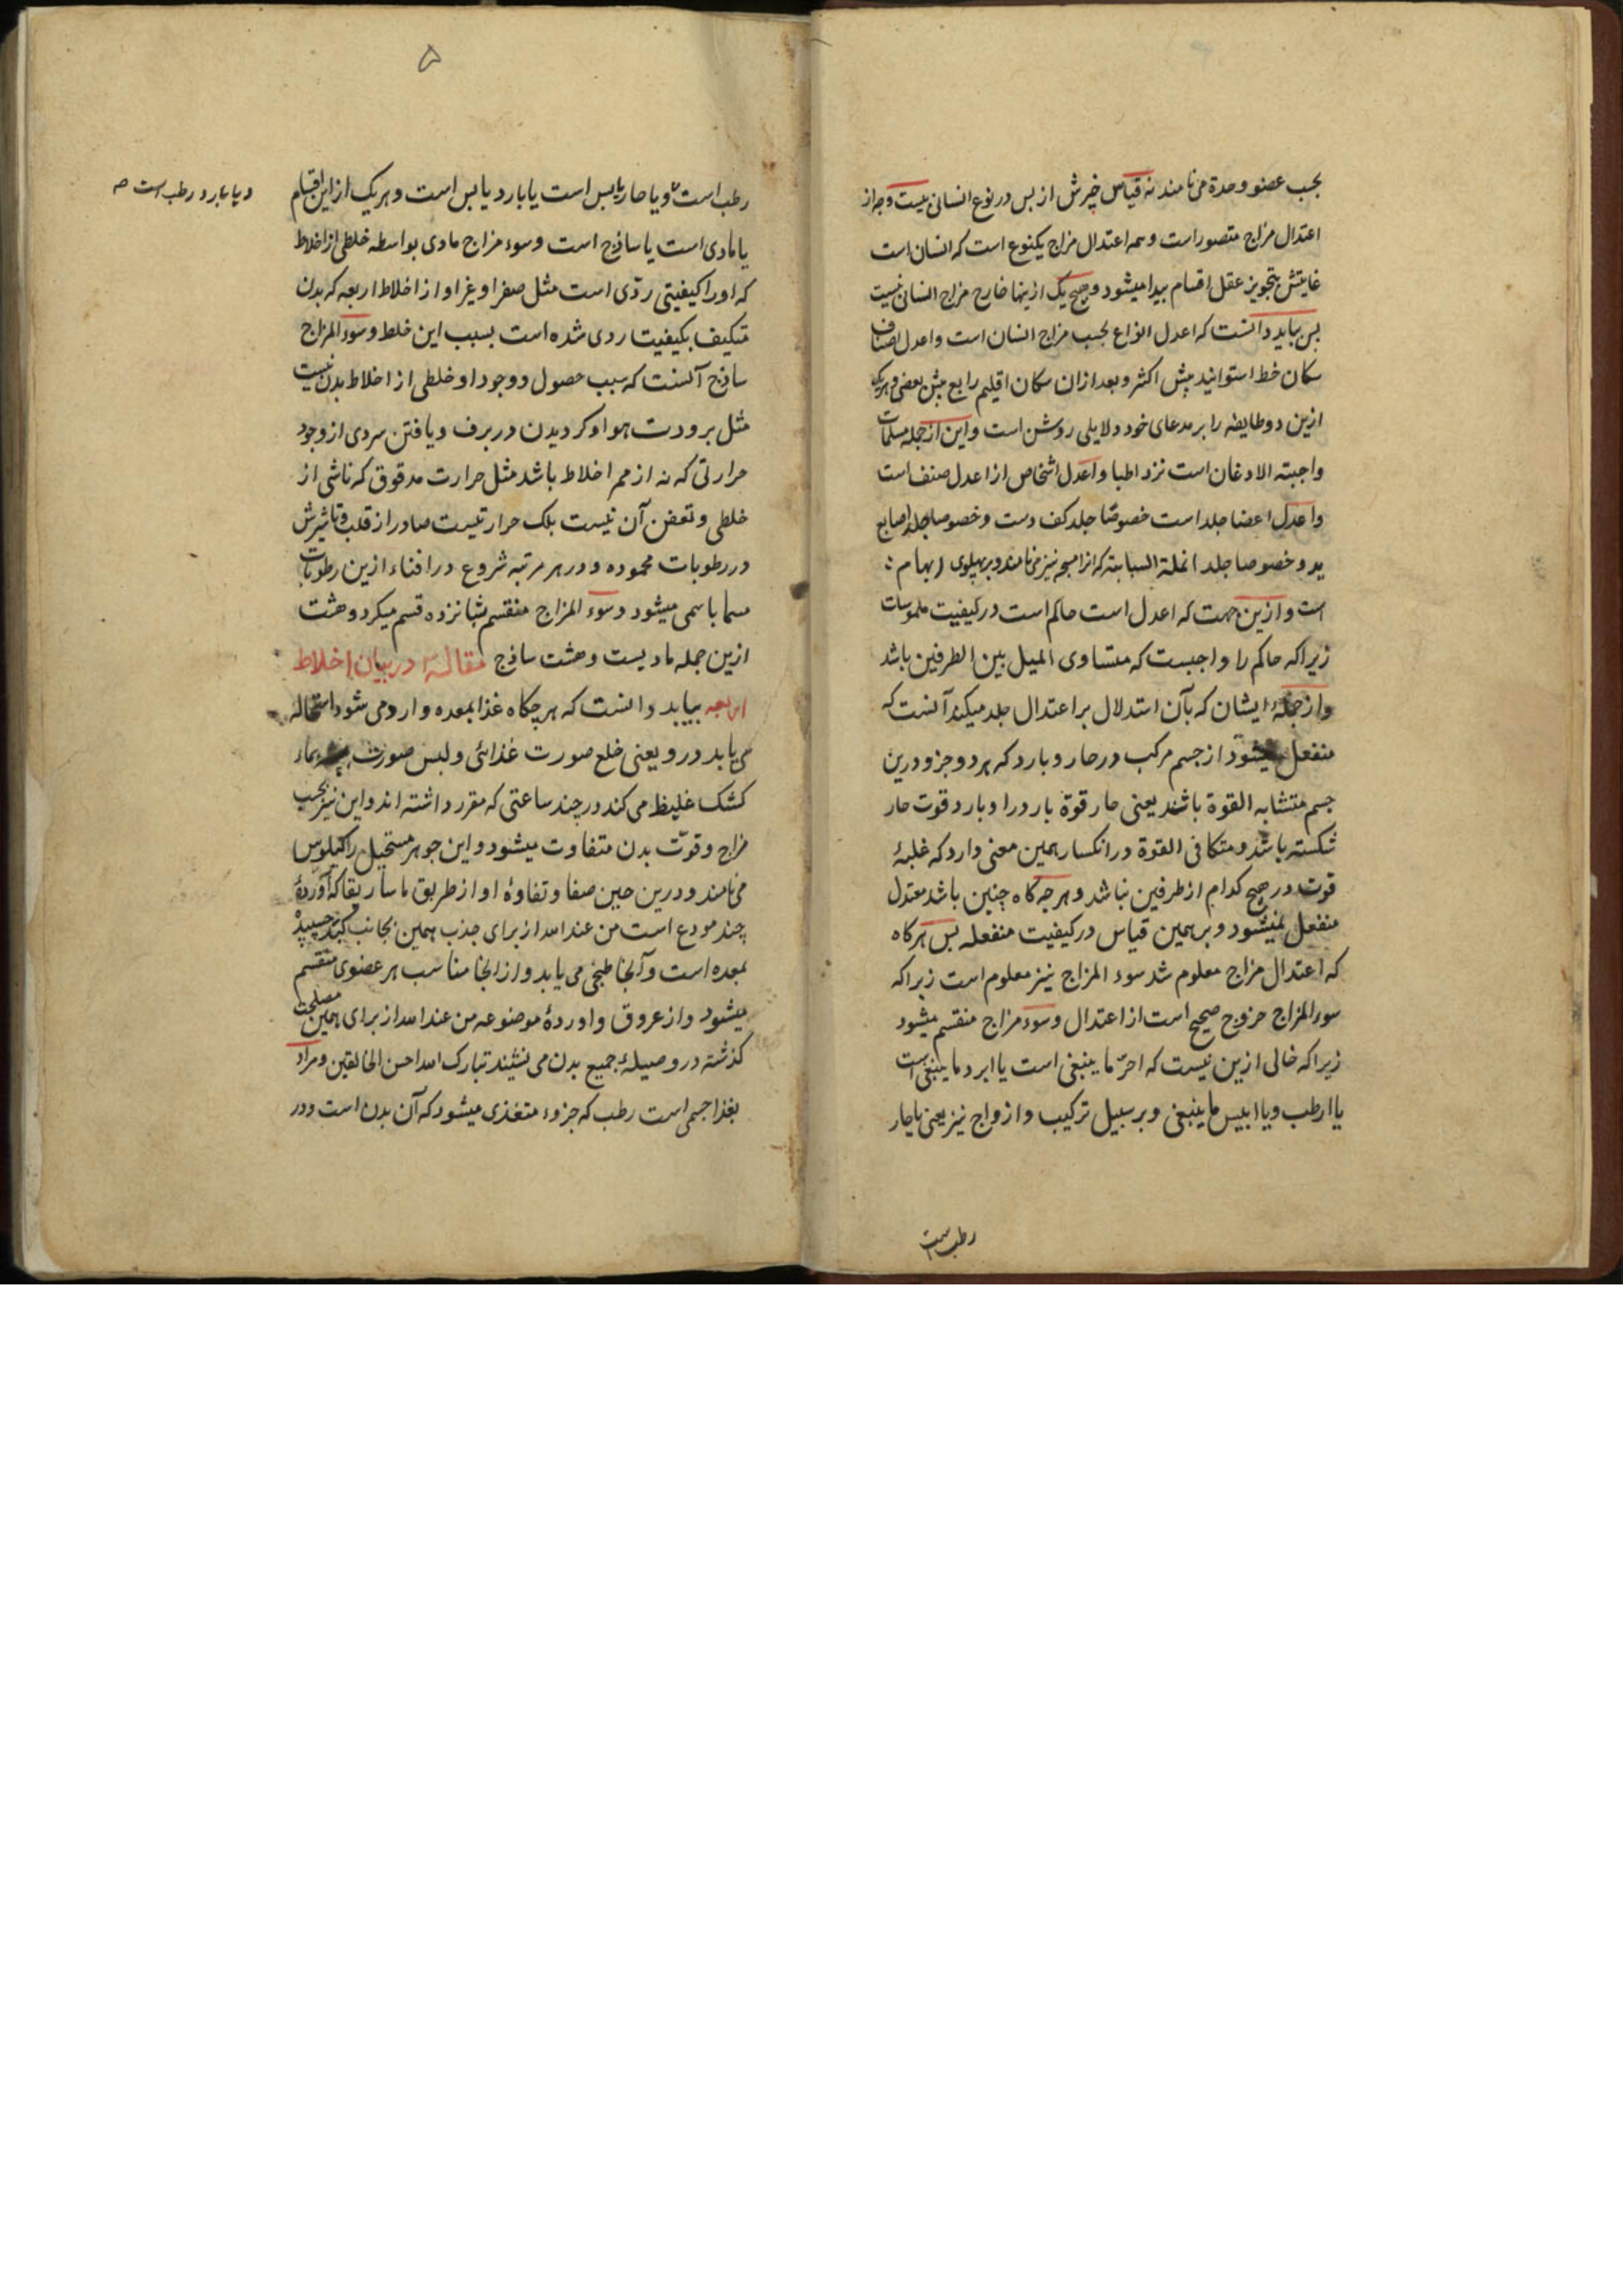 بحسب عضو وحدة می نامند نه قیاس غیرش از بس در نوع انسانی نیست وجه از
اعتدال مزاج متصور است و همه اعتدال مزاج یکنوع است که انسان است
غایتش بتجویز عقل اقسام پیدا میشود و هیچ یک ازینها خارج مزاج انسان نیست
بس بباید دانست که اعدل انواع بحسب مزاج انسان است و اعدل اصناف
سکان خط استوانید پیش اکثر و بعد ازان سکان اقلیم رابع پیش بعضی و هریک
ازین دو طایفه را بر مدعای خود دلایلی روشن است و این از جمله مسلمات
واجبته الاذعان است نزد اطبا و اعدل اشخاص از اعدل صنف است
و اعدل اعضا جلد است خصوصا جلد کف دست و خصوصا جلد اصابع
ید و خصوصا جلد انملة السبابة که انرا مسبحه نیز می نامند و بر پهلوی ابهام
است و ازین جهت که اعدل است حاکم است در کیفیت ملموسات
زیرا که حاکم را واجبست که متساوی المیل بین الطرفین باشد
و از جمله ایشان که بآن استدلال بر اعتدال جلد میکند آنست که
منفعل میشود از جسم مرکب در حار و بارد که هر دو جزو درین
جسم متشابه القوة باشند یعنی حار قوة بارد را و بارد قوت حار
شکسته باشد و متکافی القوة در انکسار همین معنی دارد که غلبهٔ
قوت در هیچ کدام از طرفین نباشد و هرجه کاه چنین باشد معتدل
منفعل نمیشود و بر همین قیاس در کیفیت منفعله بس هرکاه
که اعتدال مزاج معلوم شد سوء المزاج نیز معلوم است زیرا که
سوء المزاج خروج صحیح است از اعتدال و سوء مزاج منقسم میشود
زیرا که خالی ازین نیست که احرّ ما ینبغی است یا ابرد ما ینبغی است
یا ارطب و یا ایبس ما ینبغی و بر سبیل ترکیب و ازواج نیز یعنی یا حار
رطب است
۵
رطب است و یا حار یابس است یا بارد یابس است و هر یک از این اقسام
و یا بارد رطب است صه
یا مادی است یا ساذج است و سوء مزاج مادی بواسطه خلطی از اخلاط
که او را کیفیتی ردّی است مثل صفرا و غیر او از اخلاط اربعه که بدن
متکیف بکیفیت ردی شده است بسبب این خلط و سوء المزاج
ساذج آنست که سبب حصول و وجود او خلطی از اخلاط بدن نیست
مثل برودت هوا و کردیدن در برف و یافتن سردی از وجود
حرارتی که نه از ممر اخلاط باشد مثل حرارت مدقوق که ناشی از
خلطی و تعفن آن نیست بلک حرارتیست صادر از قلب و تاثیرش
در رطوبات محموده و در هر مرتبه شروع در افناء ازین رطوبات
مسما باسمی میشود و سوء المزاج منقسم بشانزده قسم میکردد هشت
ازین جمله مادیست و هشت ساذج مقالهٔ در بیان اخلاط
اربعه بباید دانست که هرجکاه غذا بمعده وارد می شود استحاله
می یابد درو یعنی خلع صورت غذائی و لبس صورت بماء
کشک غلیظ می کند در چند ساعتی که مقرر داشته اند و این نیز بحسب
مزاج و قوّت بدن متفاوت میشود و این جوهر مستحیل را کیلوس
می نامند و درین حین صفا و تفاوهٔ او از طریق ماساریقا که آوردهٔ
چند مودع است من عند الله از برای جذب همین بجانب کبد چسپیده
بمعده است و آنجا طبخی می یابد و از انجا مناسب هر عضوی منقسم
میشود و از عروق و اوردهٔ موضوعه من عند الله از برای همین مصلحت
کذشته در وصیلهٔ جمیع بدن می نشیند تبارک الله احسن الخالقین و مراد
بغذا جسمی است رطب که جزوء متغذی میشود که آن بدن است و در